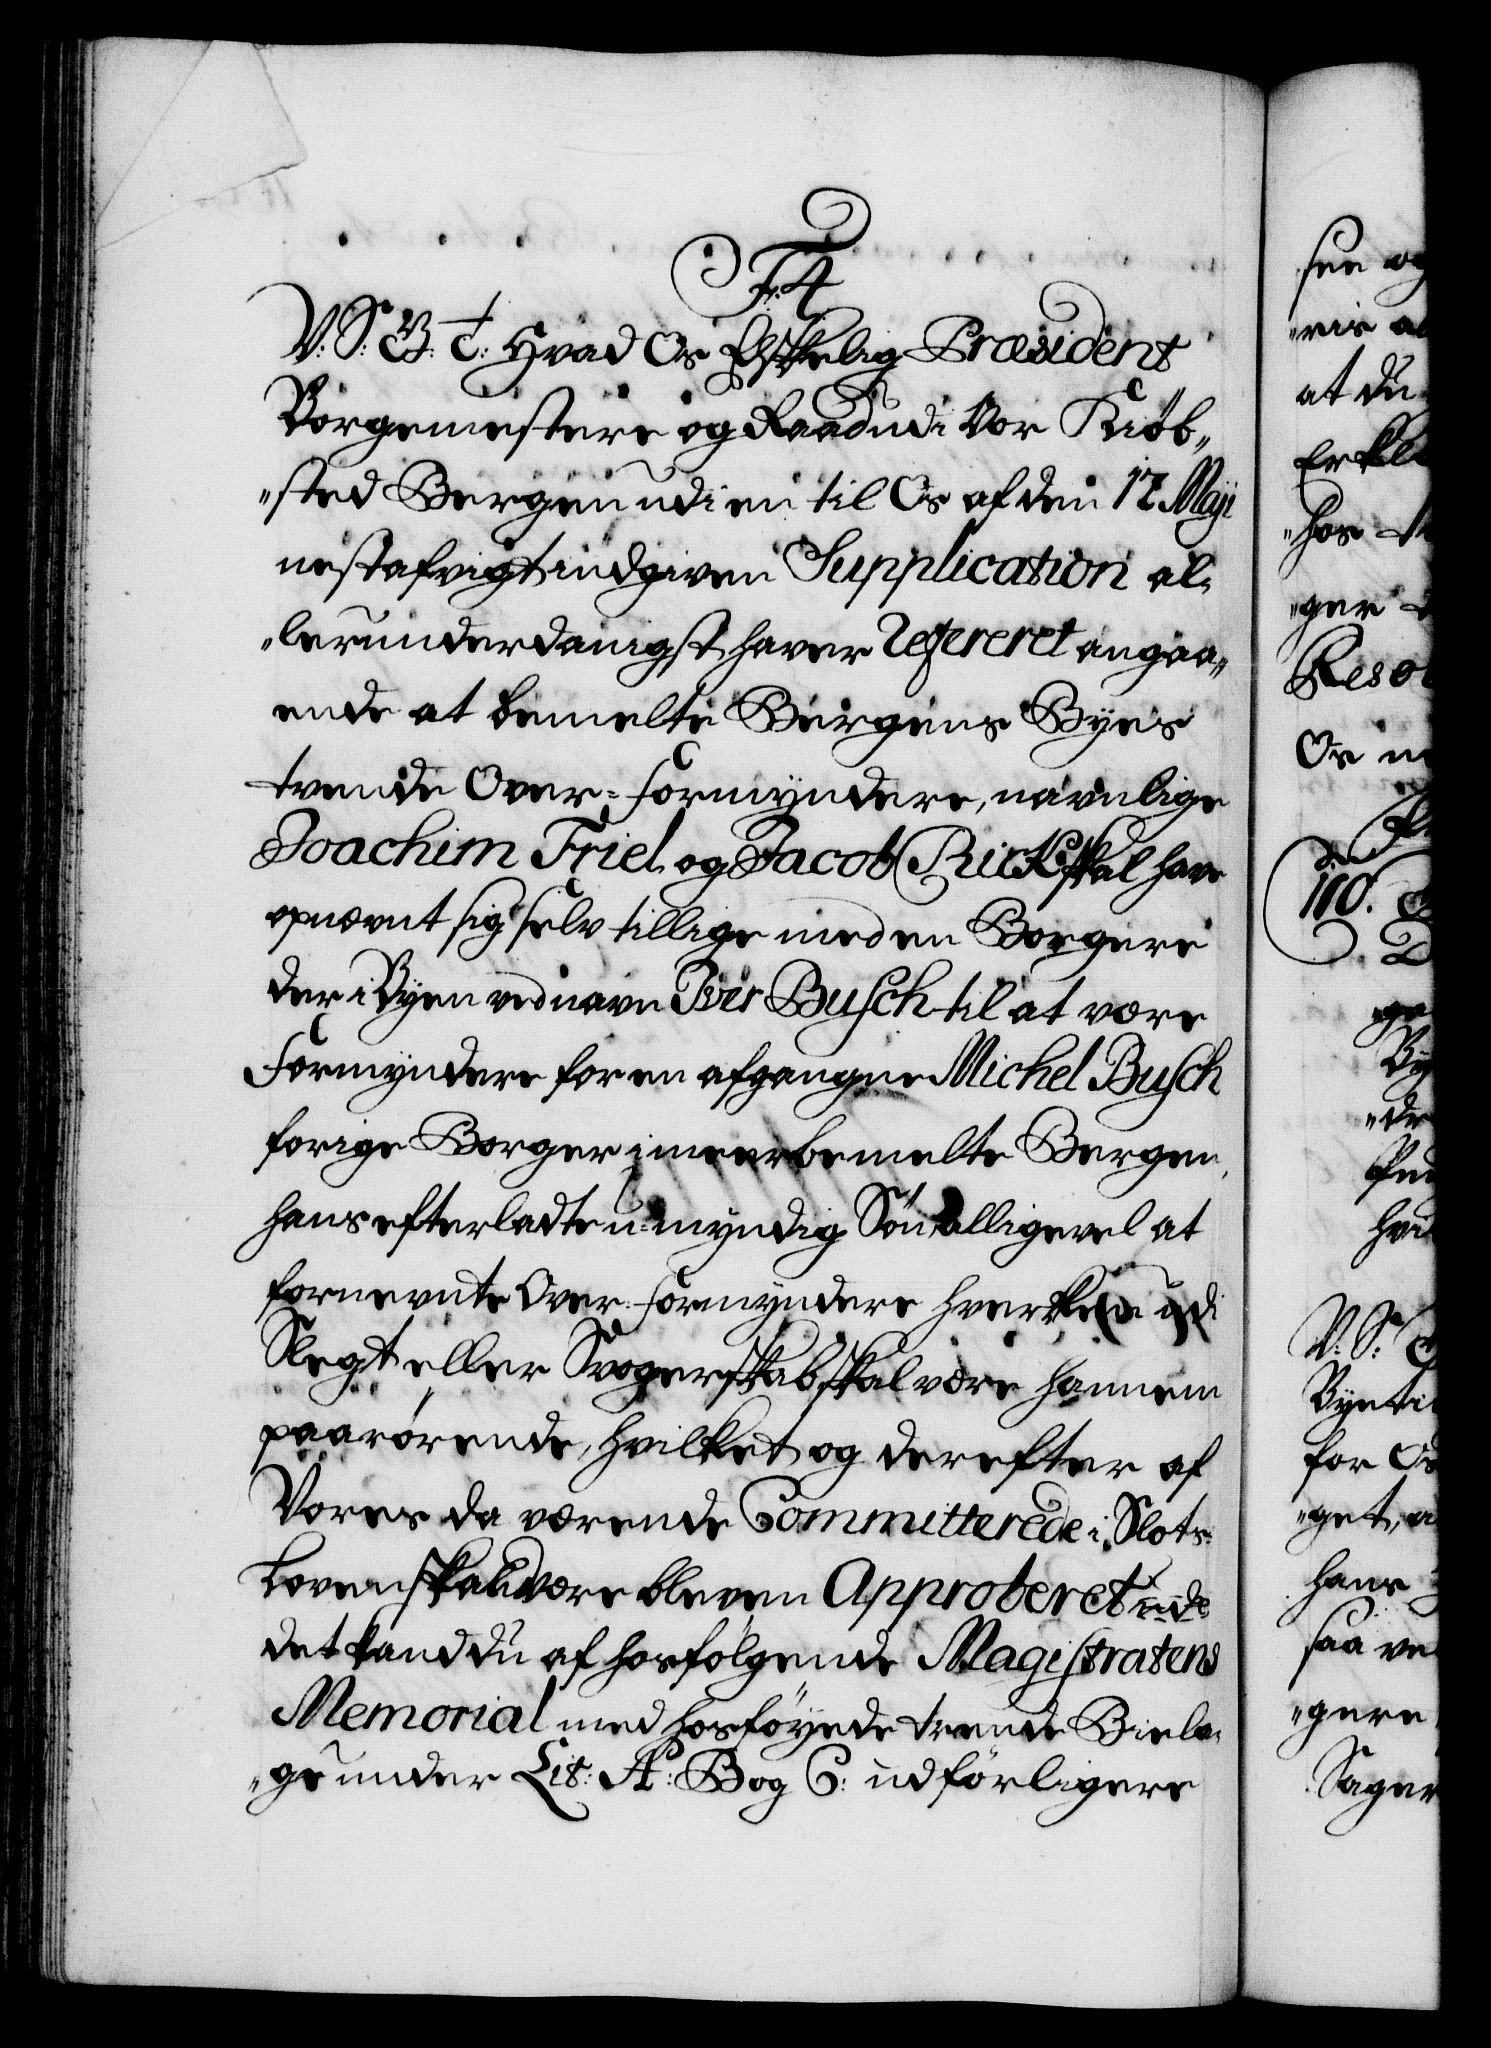 F. 4
V: S: G: T: Hvad Os Elskelig Præsident
Borgemestere og Raad udi Vor Kiøb„
„sted Bergen udi en til Os af den 17 Maji
nestafvigt indgiven Supplication al„
„lerunderdanigst haver refereret angaa„
ende at bemelte Bergens Byes
tvende Over-Formyndere, navnlige
Joachim Friel og Jacob Rick skal have
opnævnt sig selv tillige med en Borgere
der i Byen ved navn Iver Busch til at være
Formyndere for en afgangne Michel Busch
forige Borger i meerbemelte Bergen,
hans efterladte umyndig Søn, alligevel at
fornevnte Over-Formyndere hverken udi
Slegt eller Svogerskab skal være hannem
paarørende, hvilket og derefter af
Vores da værende Committerede i Slots-
loven skal være bleven Approberet,
det kand du af hosfølgende Magistratens
Memorial med hosføyede trende Biela„
„ge under Lit: A: B og C: udførligere
see og
at du
„hos
„ger
Os
110.
V: S:
for Os
„get, a
hans
saa vel
„gere
Sager